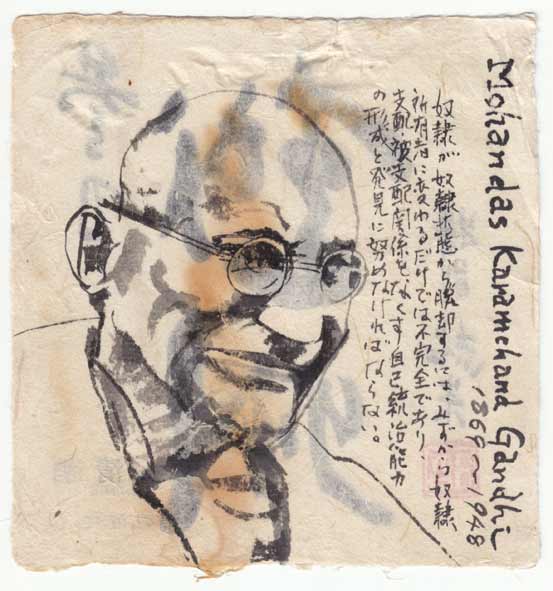 Mohandas Karamchand Gandhi
1869〜1948
奴隷が奴隷状態から脱却するには、みずから奴隷
所有者に変わるだけでは不完全であり
支配・被支配関係をなくす自己統治能力
の形成と発見に努めなければならない。